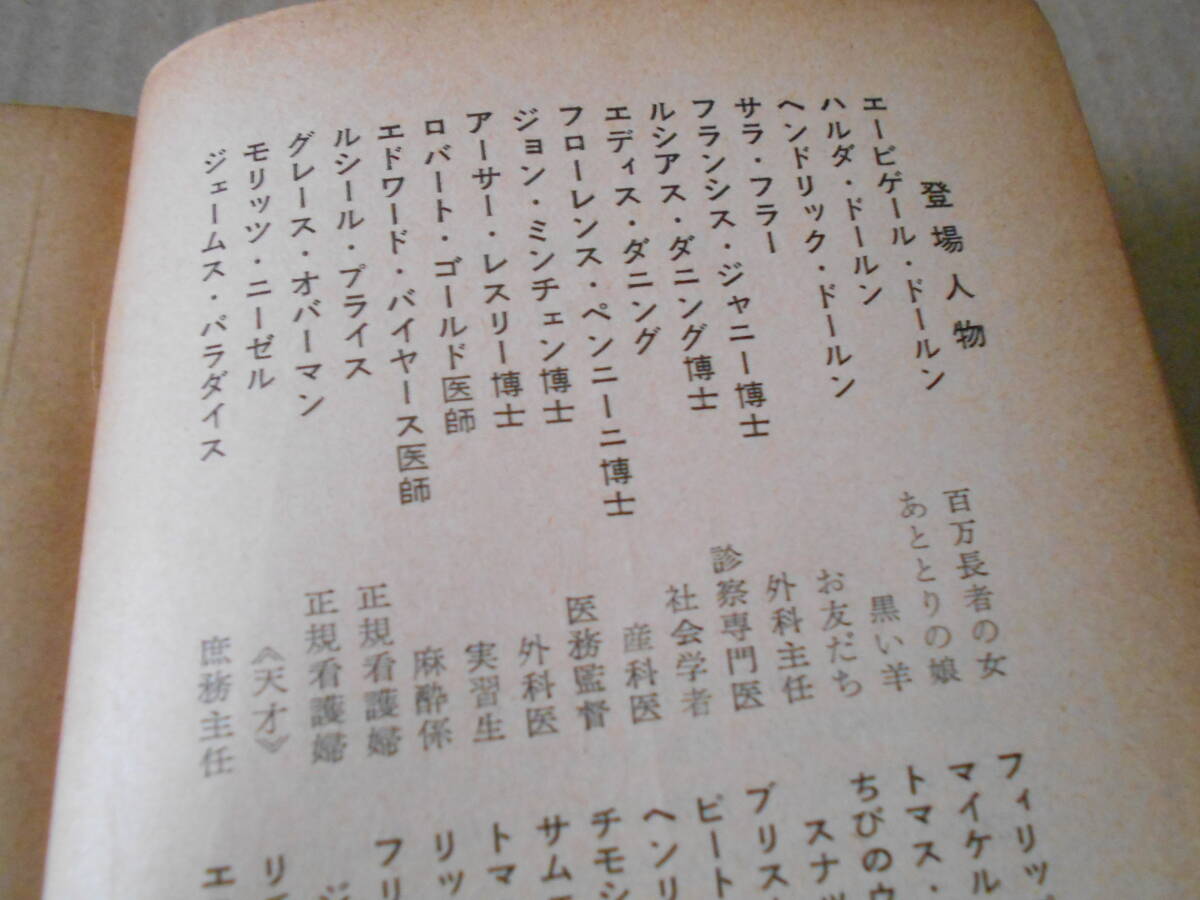 登場人物
エービゲール・ドールン
ハルダ・ドールン
ヘンドリック・ドールン
サラ・フラー
フランシス・ジャニー博士
ルシアス・ダニング博士
エディス・ダニング
フローレンス・ペンニーニ博士
ジョン・ミンチェン博士
アーサー・レスリー博士
ロバート・ゴールド医師
エドワード・バイヤース医師
ルシール・プライス
グレース・オバーマン
モリッツ・ニーゼル
ジェームス・パラダイス
百万長者の女
あととりの娘
黒い羊
お友だち
外科主任
診察専門医
社会学者
産科医
医務監督
外科医
実習生
麻酔係
正規看護婦
正規看護婦
《天才》
庶務主任
フィリッ
マイケル
トマス・
ちびのウ
スナッ
ブリス
ピート
ヘンリ
チモシ
サム
トマ
リッ
フリ
ジ
リ
エ